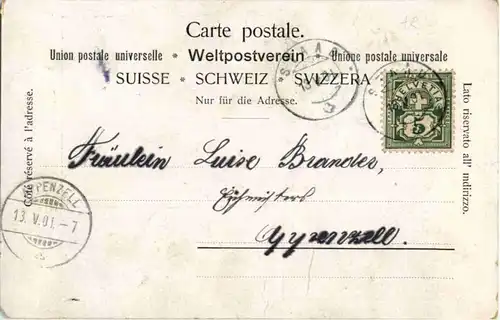 Carte postale.
Union postale universelle * Weltpostverein * Unione postale universale
SUISSE * SCHWEIZ * SVIZZERA *
Nur für die Adresse.
Côté réservé à l'adresse.
Lato riservato all' indirizzo.
HELVETIA
5
Fräulein Luise Brander,
Appenzell.
APPENZELL
13. V. 01. - 7